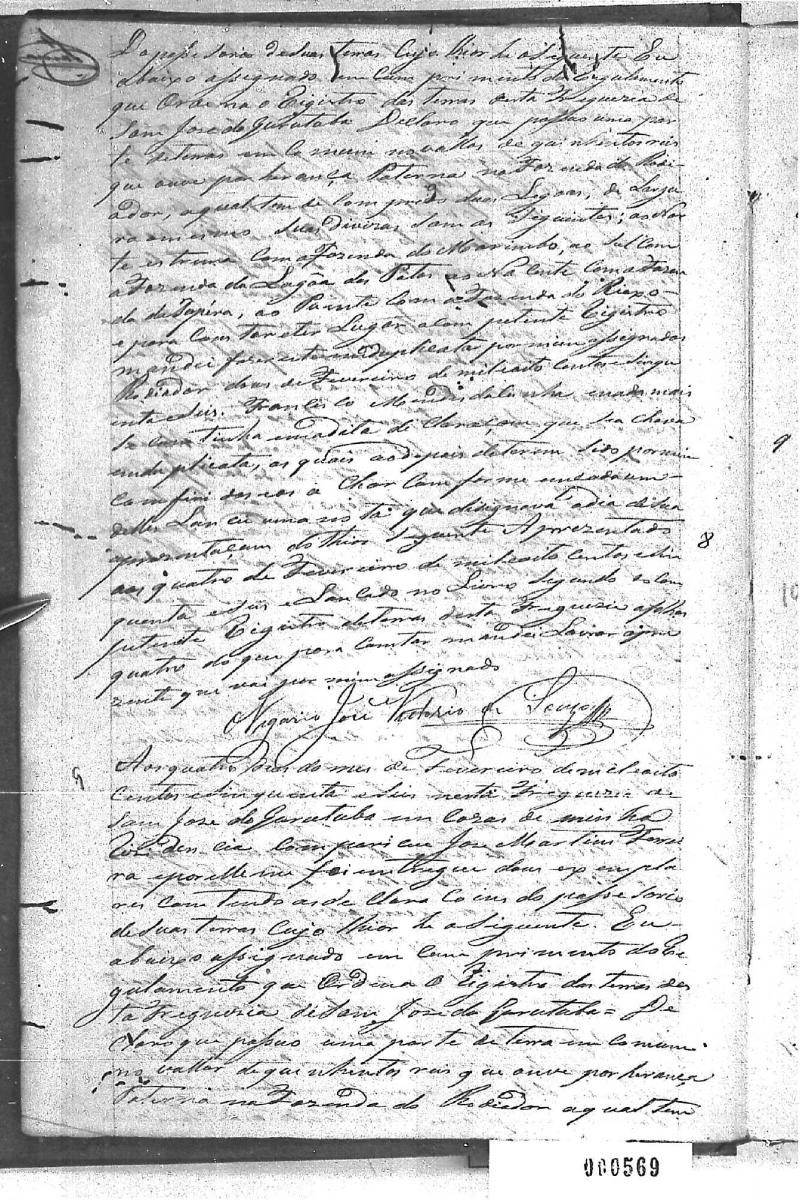 Do possesorio de suas terras Cujo thior he o siguente Eu
abaixo assignado em Com primento do Regulamento
que Ordena o Rigistro das terras desta Freguezia de
Sam Jose do Gurutuba Declaro que possuo uma par
te de terras em Comum no vallor de quinhentos reis
que ouve por herança Paterna na Fazenda do Rodi
ador, a qual tem de Com prido duas Legoas, de Largu
ra omesmo suas divizas Sam as Siguentes; ao Nor
te estrema Com a Fazenda do Marimbo, ao Sul Com
a Fazenda da Lagôa dos Patos ao Na Cente Com a Fazen
da da Tapéra, ao Puente Com a Fazenda do Riaxo
e para Constar etes Lugar o Com petente Rigistro
mandei fazer esta em duplicata por mim assignados
Rodiador dous de Fevereiro de mil eoito Centos e Sinqu
enta e Seis. Francisco Mendes da Cunha enada mais
Se Continha em a dita de Claraçam que Se a chava
em duplicata, as quais ao depois de terem Sido por mim
Comfiridas eas a Char Com forme em cada um
delles Lancei uma no ta que disignava o dia de Sua
aprezentaçam do thior Siguente Aprezentado
aos quatro de Fevereiro de mil eoito Centos e Sin
quenta e Seis e Lançado no Livro Segundo do Com
petente Rigistro de terras desta Freguezia a folhas
quatro do que para Constar mandei Lavrar o pre
zente que vai por mim assignado
Vigario José Victorio de Souza
8
9
Aos quatro Dias do mes de Fevereiro de mil eoito
Centos e Sinquenta e Seis nesta Freguezia de
Sam Jose do Gurutuba em Cazas de minha
Rezidencia Compariceu Jose Martins Ferrei
ra e por elle me foi entregue dous exempla
res Com tendo as de Clara Coens do possesorio
de Suas terras Cujo thior he o Siguente. Eu
abaixo assignado em Com primento do Re
gulamento que Ordena O Rigistro das terras des
ta Freguezia de Sam Jose do Gurutuba = De
Claro que possuo uma parte de terra em Comum
no vallor de quinhentos reis que ouve por herança
Paterna na Fazenda do Rodiador a qual tem
000569